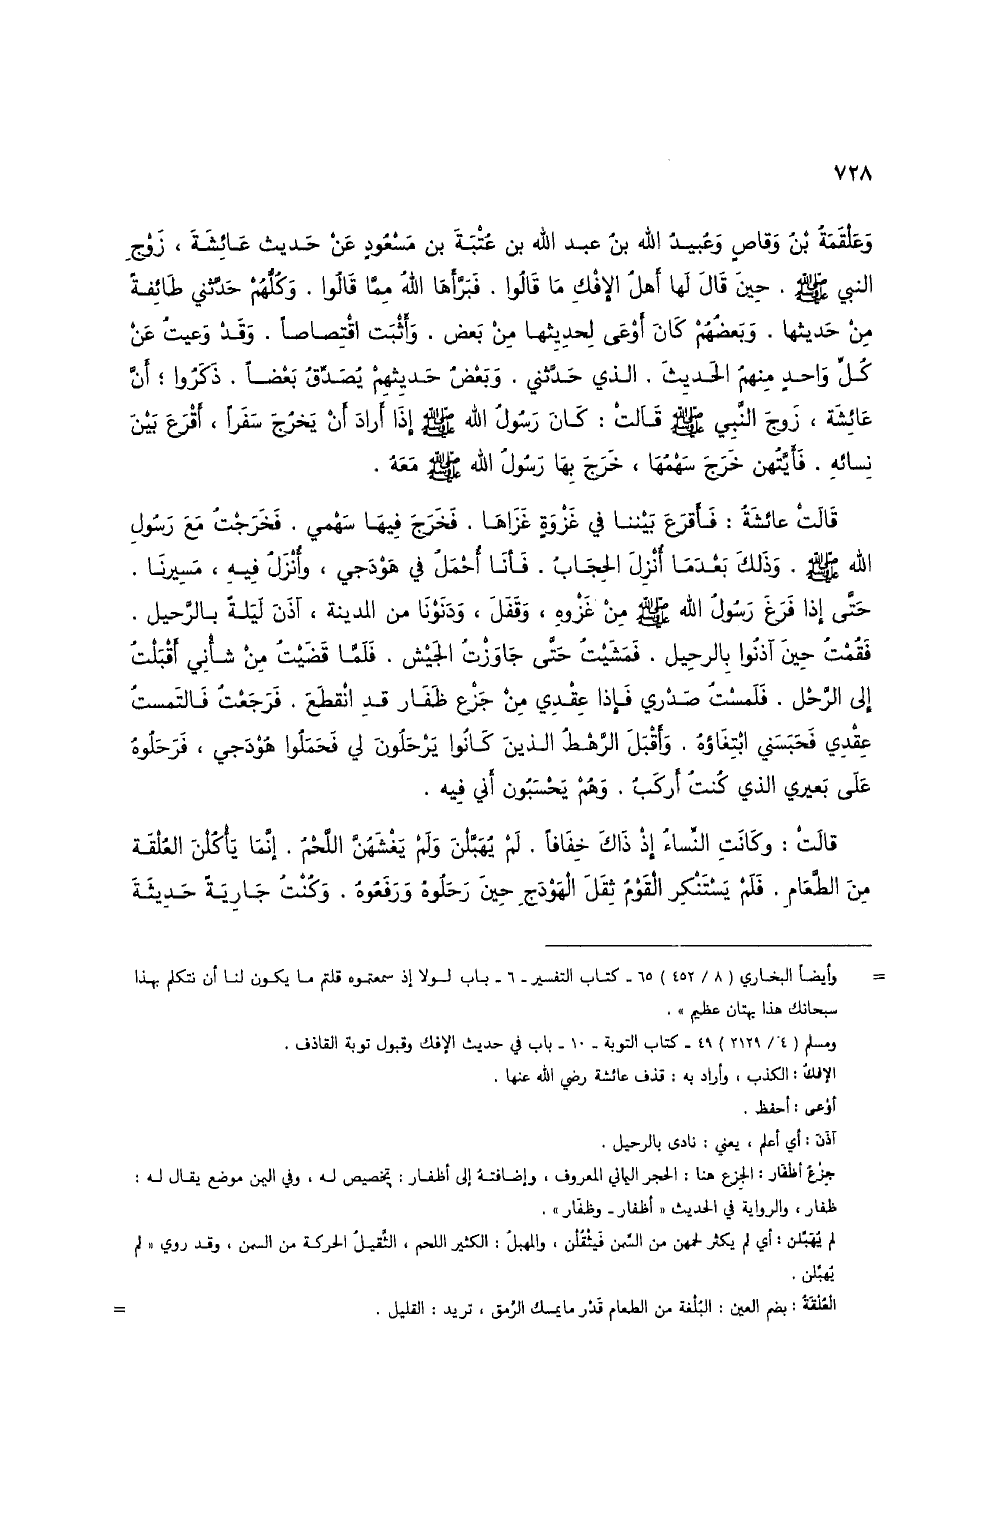 ٧٢٨
وَعَلْقَمَةُ بْنُ وَقاصٍ وَعُبيدُ الله بنُ عبد الله بن عُتْبَةَ بن مَسْعُودٍ عَنْ حَديث عَائِشَةَ ، زَوْجِ
النبي ﷺ . حِينَ قَالَ لَها أَهلُ الإفْكِ مَا قَالُوا . فَبَرَّأَهَا اللهُ مِمَّا قَالُوا . وَكُلُّهُمْ حَدَّثني طَائِفةً
مِنْ حَديثها . وَبَعضُهُمْ كَانَ أوْعَى لحديثها مِنْ بَعض . وَأَثْبَت اقْتِصاصاً . وَقَدْ وَعيتُ عَنْ
كُلِّ وَاحدٍ مِنهمُ الحَديثَ . الذي حَدَّثني . وَبَعْضُ حَديثهِمْ يُصَدِّقُ بَعْضاً . ذَكَرُوا ؛ أنَّ
عَائِشَة ، زَوجَ النَّبي ﷺ قَالتْ : كَانَ رَسُولُ الله ﷺ إذَا أرادَ أنْ يَخرُجَ سَفَراً ، أَقْرَعَ بَيْنَ
نِسائهِ . فَأَيَّتُهن خَرَجَ سَهْمُهَا ، خَرَجَ بِهَا رَسُولُ الله ﷺ مَعَهُ .
قَالَتْ عائشَةُ : فَأقرَعَ بَيْننا في غَزْوَةٍ غَزَاهَا . فَخَرَجَ فِيهَا سَهْمي . فَخَرَجْتُ مَعَ رَسُول
الله ﷺ . وَذَلكَ بَعْدَمَا أُنْزِلَ الحِجَابُ . فَأنَا أُحْمَلُ في هَوْدَجي ، وأُنْزَلُ فيهِ ، مَسِيرنَا .
حَتَّى إذا فَرَغَ رَسُولُ الله ﷺ مِنْ غَزْوه ، وَقَفَلَ ، وَدَنَوْنَا من المدينة ، آذَنَ لَيَلةً بالرَّحيل .
فَقُمْتُ حينَ آذنُوا بِالرحيل . فَمَشَيْتُ حَتَّى جَاوَزْتُ الجَيْشَ . فَلَمَّا قَضَيْتُ مِنْ شأْني أَقْبَلْتُ
إلى الرَّحْل . فَلَمسْتُ صَدْري فَإذا عِقْدي مِنْ جَزْع ظَفَار قد انْقطَعَ . فَرَجَعْتُ فَالتَمستُ
عِقْدِي فَحَبَسَني ابْتِغَاؤهُ . وَأقْبَلَ الرَّهْطُ الذينَ كَانُوا يَرْحَلُونَ لي فَحَمَلُوا هُوْدَجي ، فَرَحَلُوهُ
عَلَى بَعيري الذي كُنتُ أَركَبُ . وَهُمْ يَحْسَبُون أَني فِيه .
قالَتْ : وكَانَتِ النِّساءُ إذْ ذَاكَ خِفَافاً . لَمْ يُهَبَّلْنَ وَلَمْ يَغْشَهُنَّ اللَّحْمُ . إنَّمَا يَأْكُلْنَ العُلْقَة
مِنَ الطَّعَامِ . فَلَمْ يَسْتَنْكِر الْقَوْمُ ثِقَلَ الْهَوْدَجِ حِينَ رَحَلُوهُ وَرَفَعُوهُ . وَكُنْتُ جَاريَةً حَديثَةَ
= وأيضاً البخاري ( ٨ / ٤٥٢ ) ٦٥ ـ كتاب التفسير ـ ٦ ـ باب لولا إذ سمعتموه قلتم ما يكون لنا أن نتكلم بهذا
سبحانك هذا بهتان عظيم » .
ومسلم ( ٤ / ٢١٢٩ ) ٤٩ ـ كتاب التوبة ـ ١٠ ـ باب في حديث الإفك وقبول توبة القاذف .
الإفكُ : الكذب ، وأراد به : قذف عائشة رضي الله عنها .
أوْعى : أحفظ .
آذَنَ : أي أعلم ، يعني : نادى بالرحيل .
جزْعُ أظفار : الجزع هنا : الحجر اليماني المعروف ، وإضافته إلى أظفار : تخصيص له ، وفي اليمن موضع يقال له :
ظفار ، والرواية في الحديث « أظفار ـ وظفَار » .
لم يُهَبَّلن : أي لم يكثر لحمهن من السِّمن فَيثْقُلْن ، والمهبلُ : الكثير اللحم ، الثَّقيلُ الحركة من السمن ، وقد روي « لم
يُهبَّلن .
العُلقَةُ : بضم العين : البُلْغة من الطعام قَدْر مايمسك الرَّمق ، تريد : القليل . =